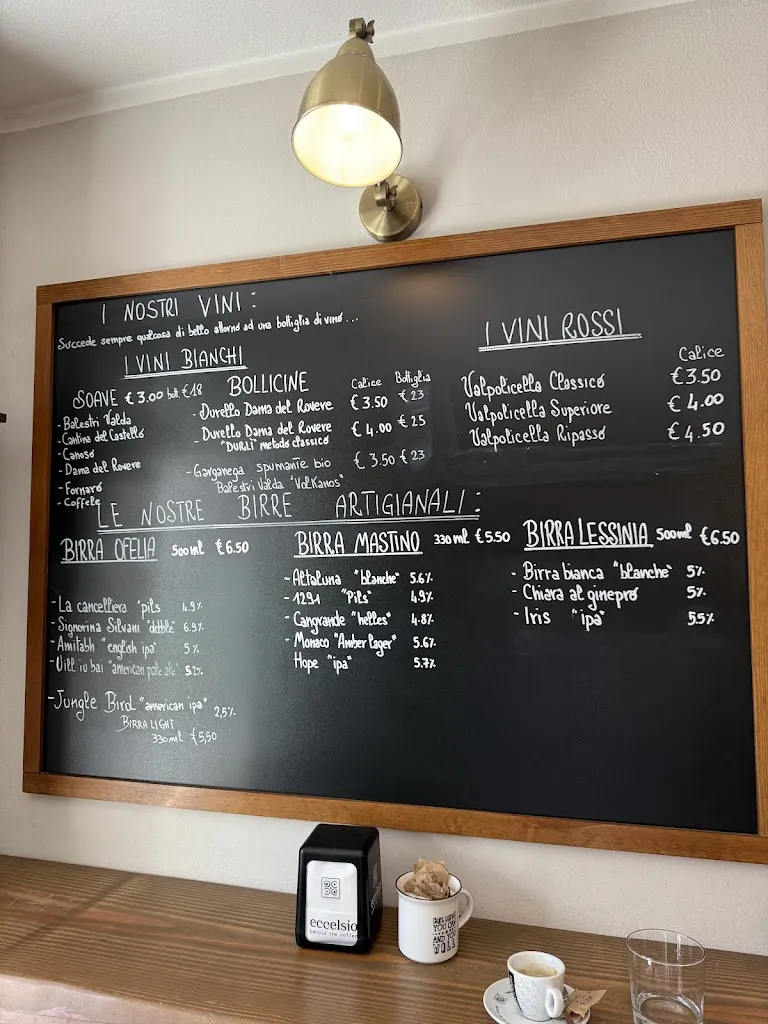 I NOSTRI VINI:
Succede sempre qualcosa di bello attorno ad una bottiglia di vino...
I VINI BIANCHI
SOAVE € 3.00 bott. €18
- Balestri Valda
- Cantina del Castello
- Canoso
- Dama del Rovere
- Fornaro
- Coffele
BOLLICINE Calice Bottiglia
- Durello Dama del Rovere € 3.50 € 23
- Durello Dama del Rovere € 4.00 € 25
"DURLI" metodo classico
- Garganega spumante bio € 3.50 € 23
Balestri Valda "Volkanos"
I VINI ROSSI
Calice
Valpolicella Classico €3.50
Valpolicella Superiore € 4.00
Valpolicella Ripasso € 4.50
LE NOSTRE BIRRE ARTIGIANALI:
BIRRA OFELIA 500 ml €6.50
- La cancelliera "pils 4.9%
- Signorina Silvani "dubble" 6.9%
- Amitabh "english ipa" 5%
"american pale ale" 5.2%
- Jungle Bird "american ipa" 2,5%
BIRRA LIGHT
330 ml €5,50
BIRRA MASTINO 330 ml €5.50
- Altaluna "blanche" 5.6%
- 1291 "Pils" 4.9%
- Cangrande "helles" 4.8%
- Monaco "Amber lager" 5.6%
Hope "ipa" 5.7%
BIRRA LESSINIA 500 ml €6.50
- Birra bianca "blanche" 5%
- Chiara al ginepro 5%
- Iris "ipa" 5.5%
eccelsio
behold the coffee
YOU CAN
AND YOU
WILL